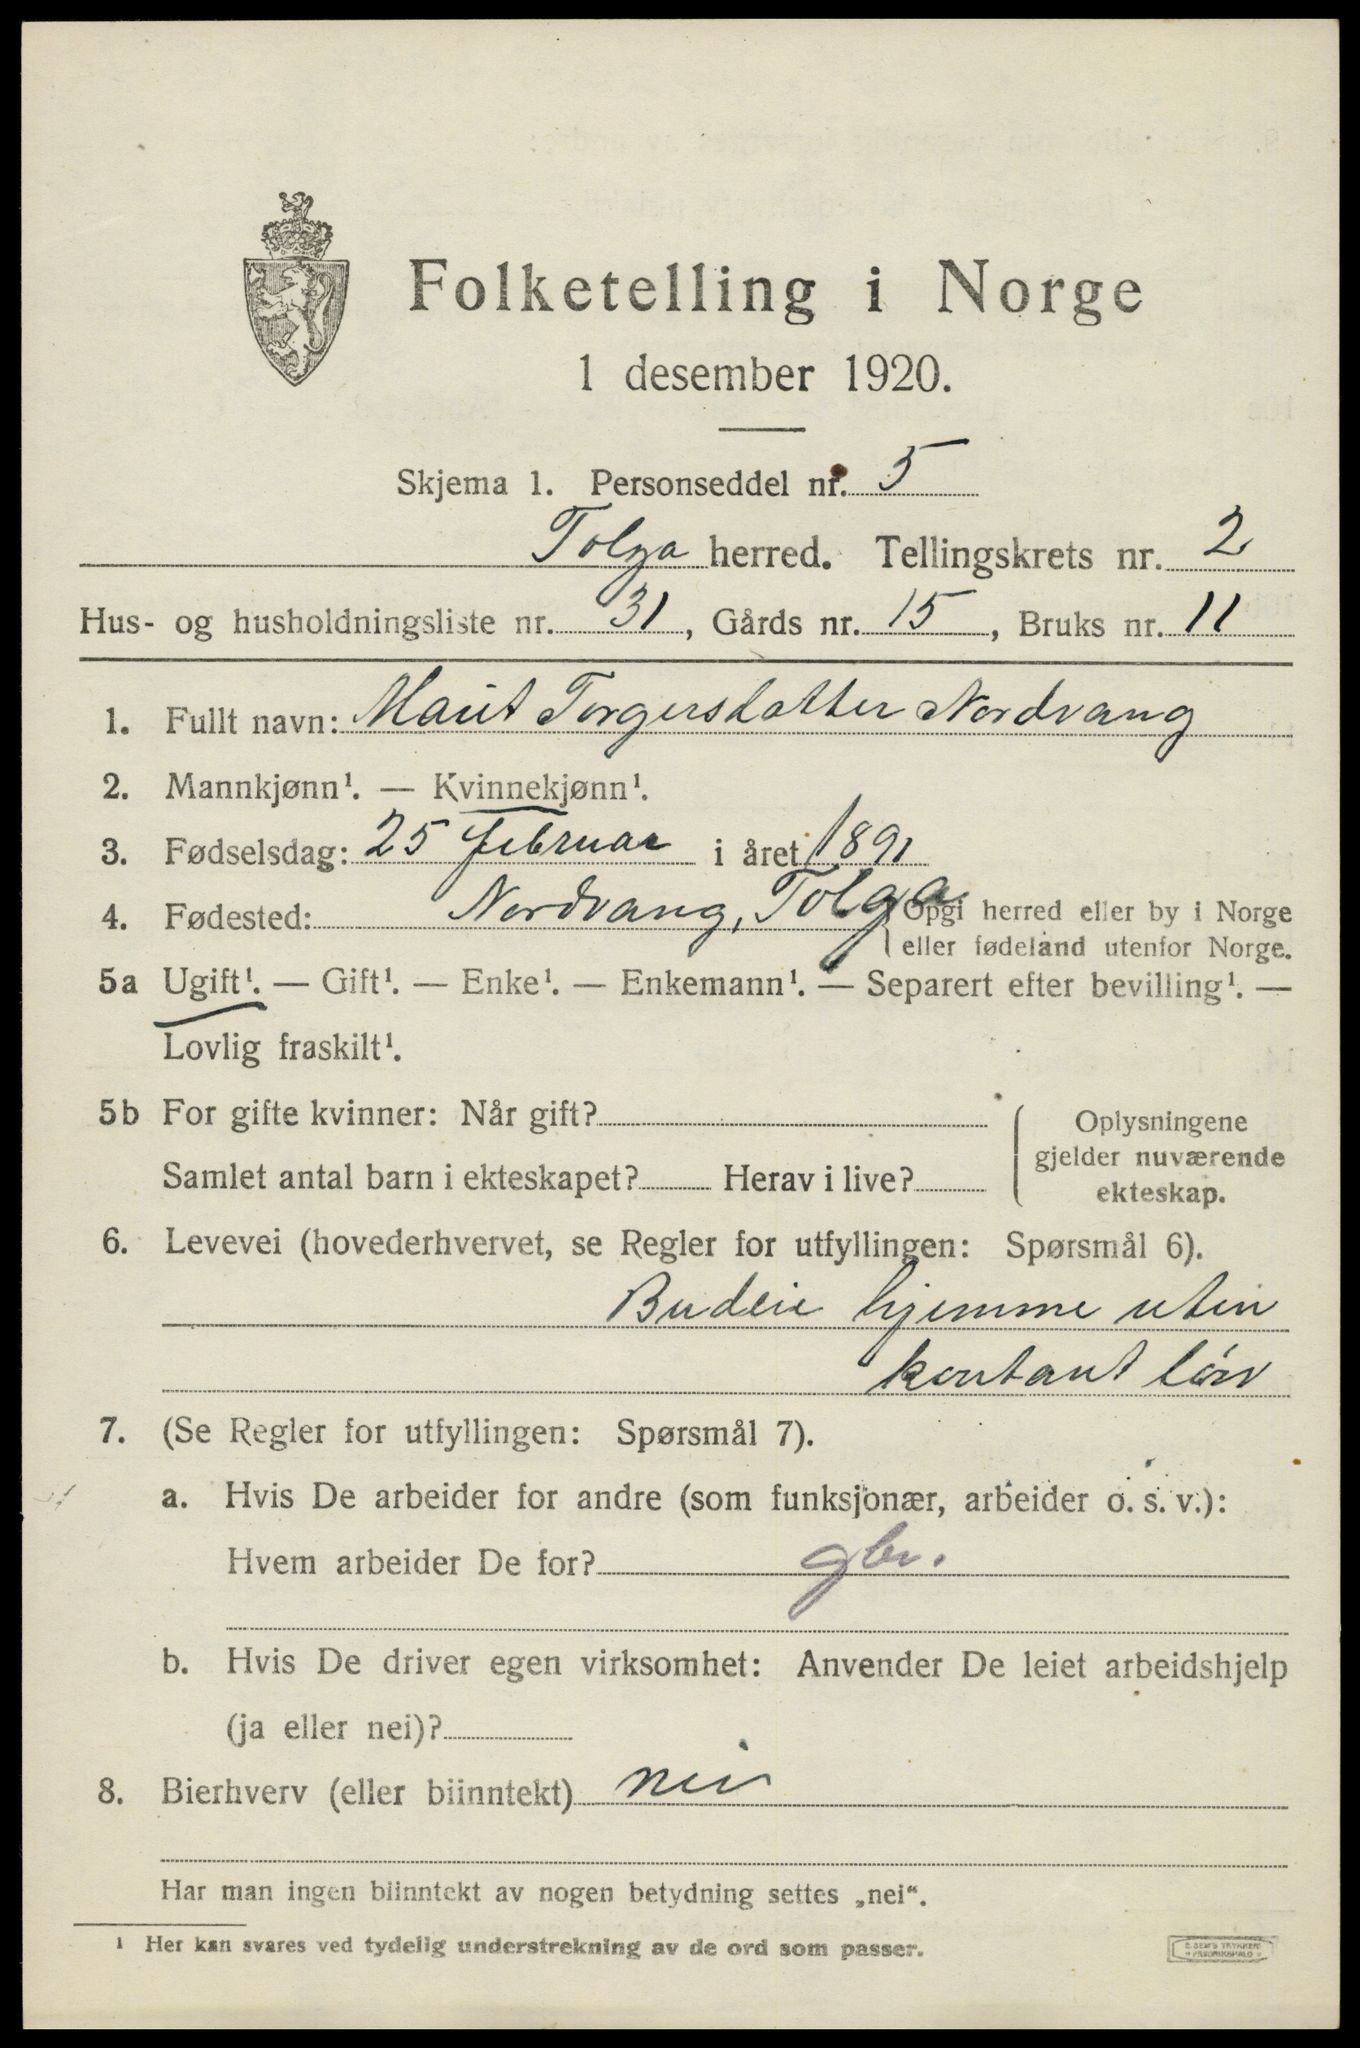 Folketelling i Norge
1 desember 1920.
Skjema 1. Personseddel nr. 5
Tolga herred. Tellingskrets nr. 2
Hus- og husholdningsliste nr. 31, Gårds nr. 15, Bruks nr. 11
1. Fullt navn: Marit Torgersdatter Nordvang
2. Mannkjønn¹. — Kvinnekjønn¹.
3. Fødselsdag: 25 februar i året 1891
4. Fødested: Nordvang, Tolga Opgi herred eller by i Norge
eller fødeland utenfor Norge.
5a Ugift¹. — Gift¹. — Enke¹. — Enkemann¹. — Separert efter bevilling¹. —
Lovlig fraskilt¹.
5b For gifte kvinner: Når gift?
Samlet antal barn i ekteskapet? Herav i live?
Oplysningene
gjelder nuværende
ekteskap.
6. Levevei (hovederhvervet, se Regler for utfyllingen: Spørsmål 6).
Budeie hjemme uten
kontant løn
7. (Se Regler for utfyllingen: Spørsmål 7).
a. Hvis De arbeider for andre (som funksjonær, arbeider o. s. v.):
Hvem arbeider De for? gbr.
b. Hvis De driver egen virksomhet: Anvender De leiet arbeidshjelp
(ja eller nei)?
8. Bierhverv (eller biinntekt) nei
Har man ingen biinntekt av nogen betydning settes „nei“.
¹ Her kan svares ved tydelig understrekning av de ord som passer.
E. SEM'S TRYKKERI
FREDRIKSHALD